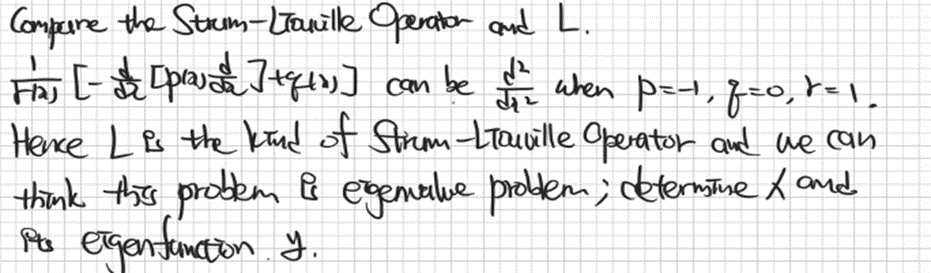 Compare the Strum-Liouville Operator and L.
1/r(x) [-d/dx [p(x) d/dx] + q(x)] can be d²/dx² when p=-1, q=0, r=1.
Hence L is the kind of Strum-Liouville Operator and we can
think this problem is eigenvalue problem; determine λ and
its eigenfunction y.